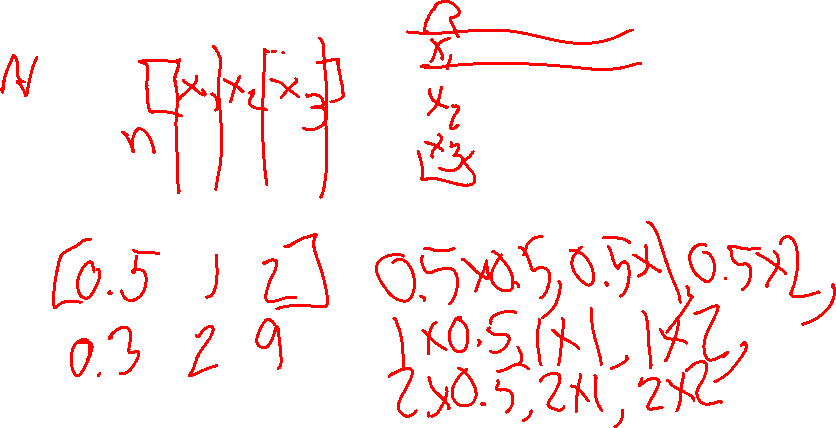 N
n
[x₁ x₂ ... x₃]
x₁
x₂
x₃
[0.5 1 2]
0.3 2 9
0.5x0.5, 0.5x1, 0.5x2,
1x0.5, 1x1, 1x2,
2x0.5, 2x1, 2x2